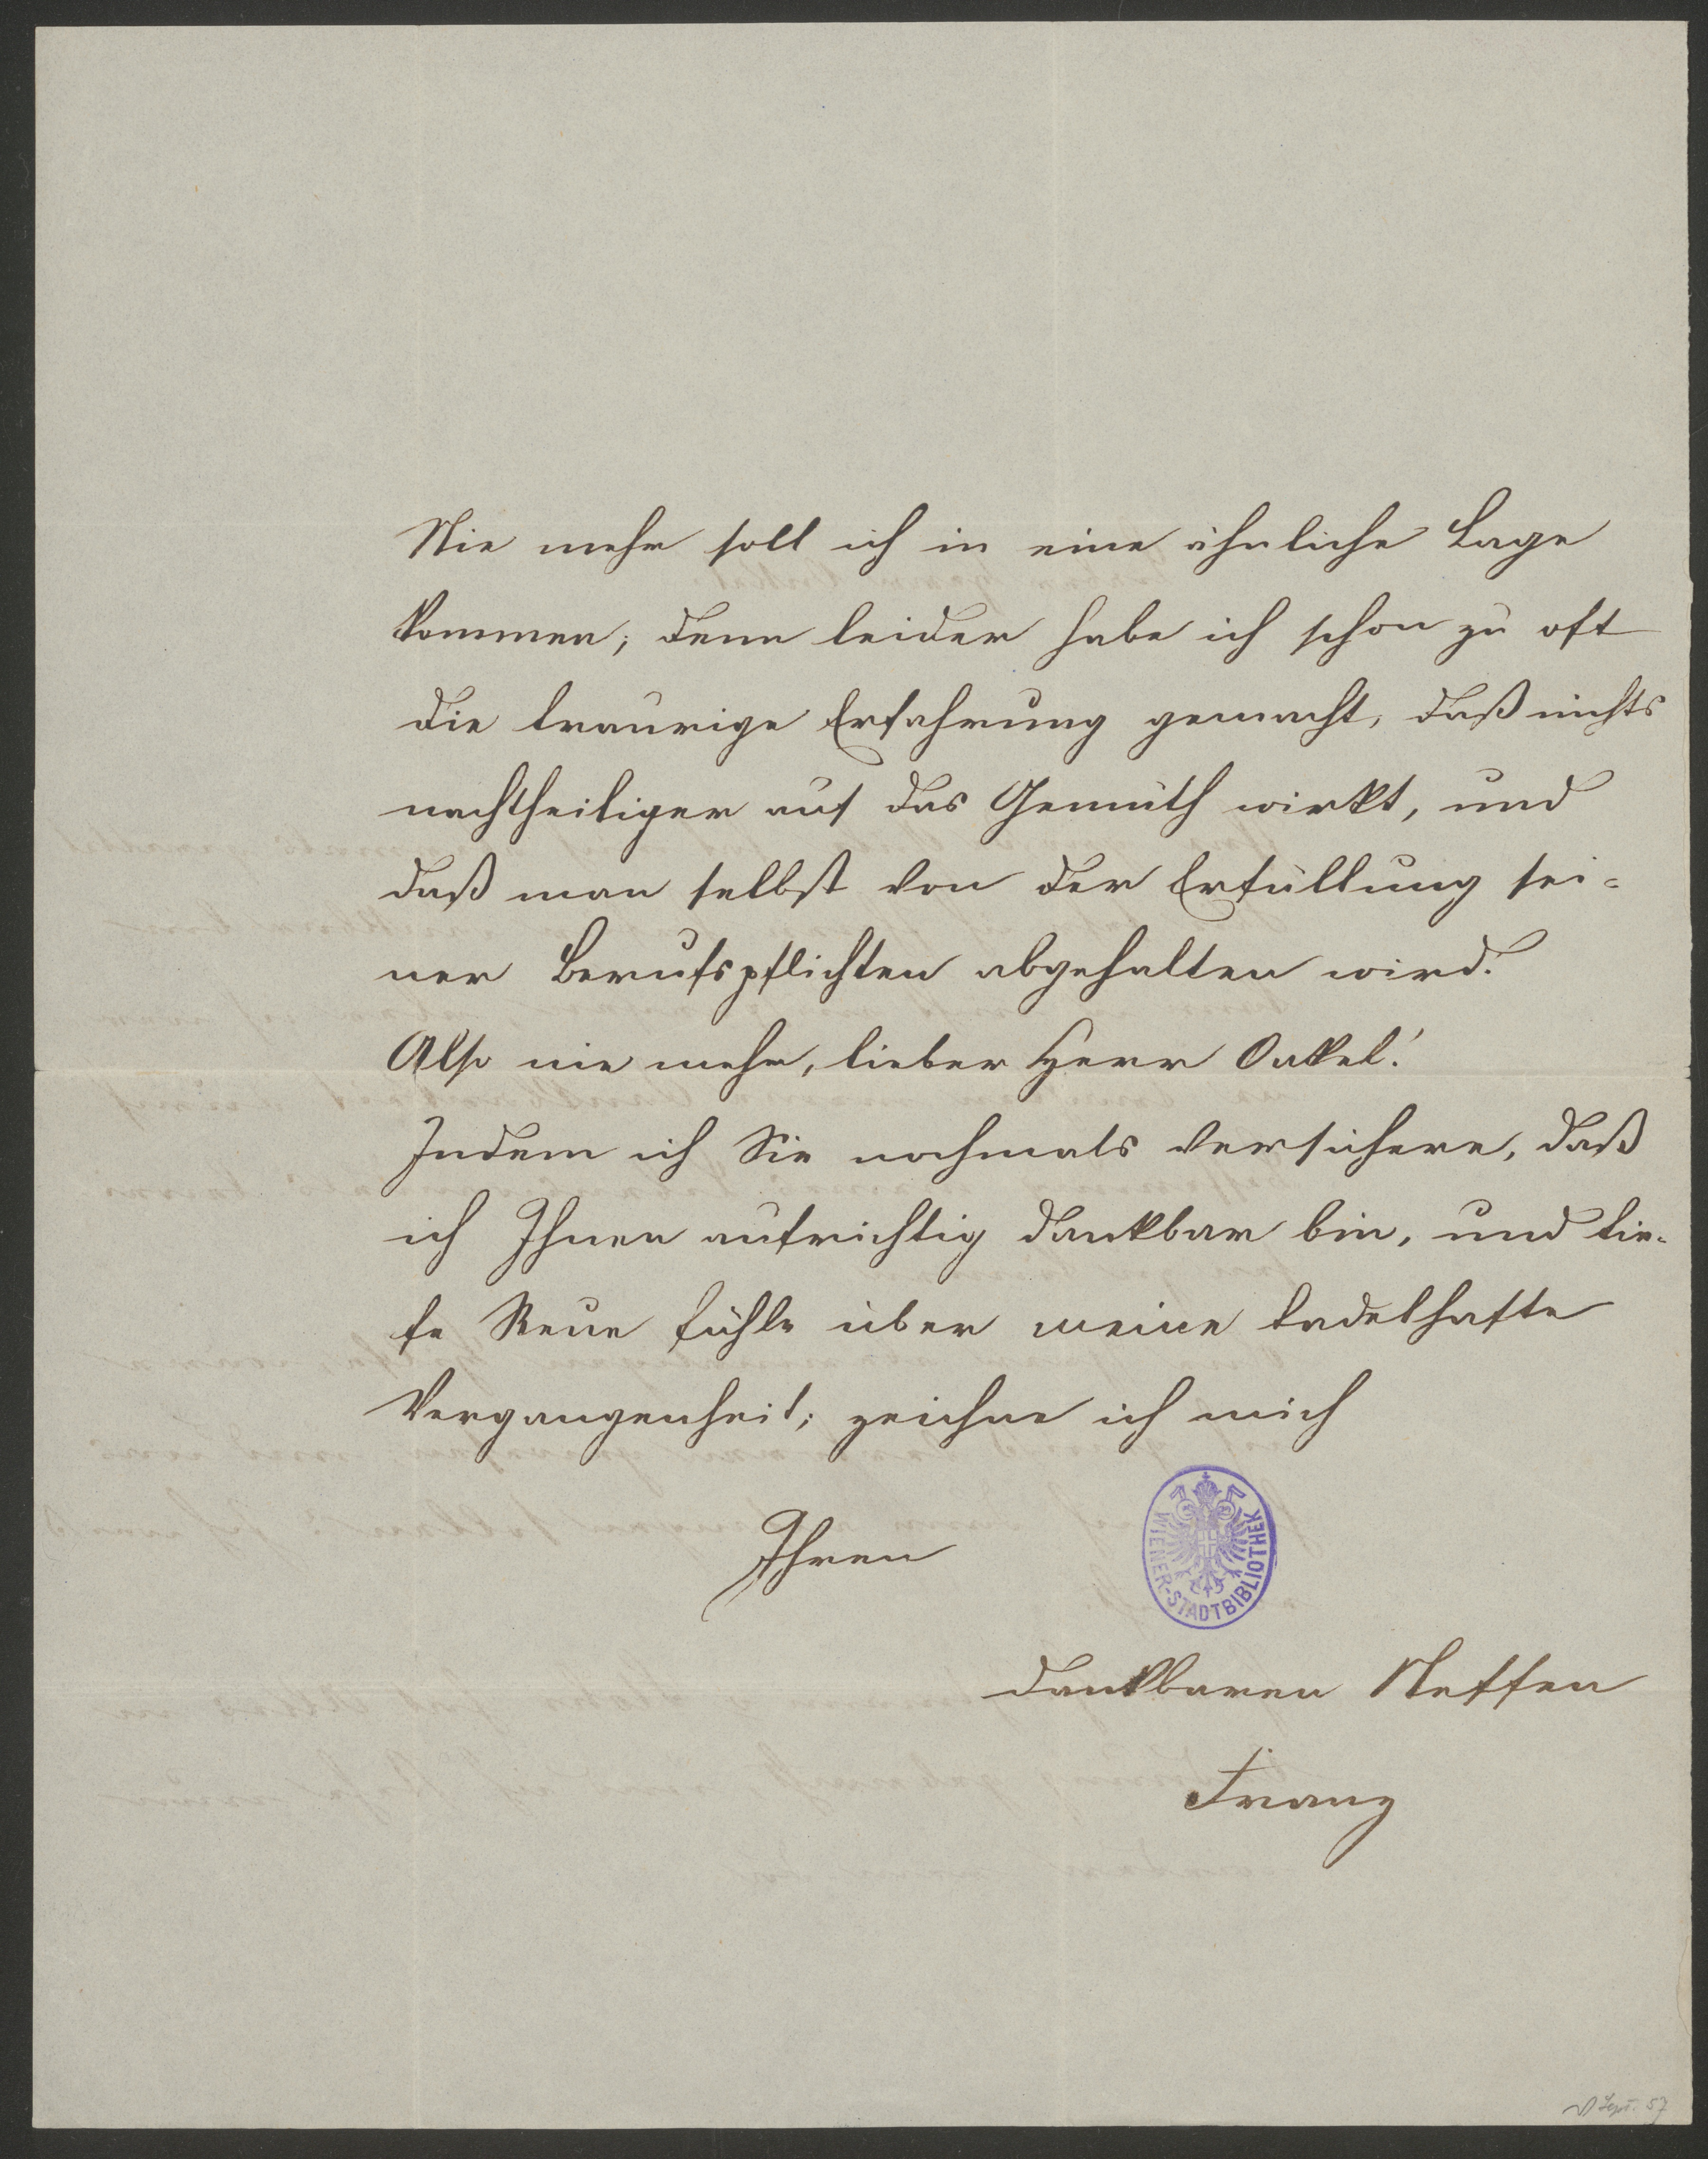 Nie mehr soll ich in eine ähnliche Lage
kommen; denn leider habe ich schon zu oft
die traurige Erfahrung gemacht, daß nichts
nachtheiliger auf das Gemüth wirkt, und
daß man selbst von der Erfüllung sei=
ner Berufspflichten abgehalten wird.
Also nie mehr, lieber Herr Onkel!
Indem ich Sie nochmals versichere, daß
ich Ihnen aufrichtig dankbar bin, und tie-
fe Reue fühle über meine tadelhafte
Vergangenheit; zeichne ich mich
Ihren
WIENER-STADTBIBLIOTHEK
dankbaren Neffen
Franz
Sept. 57